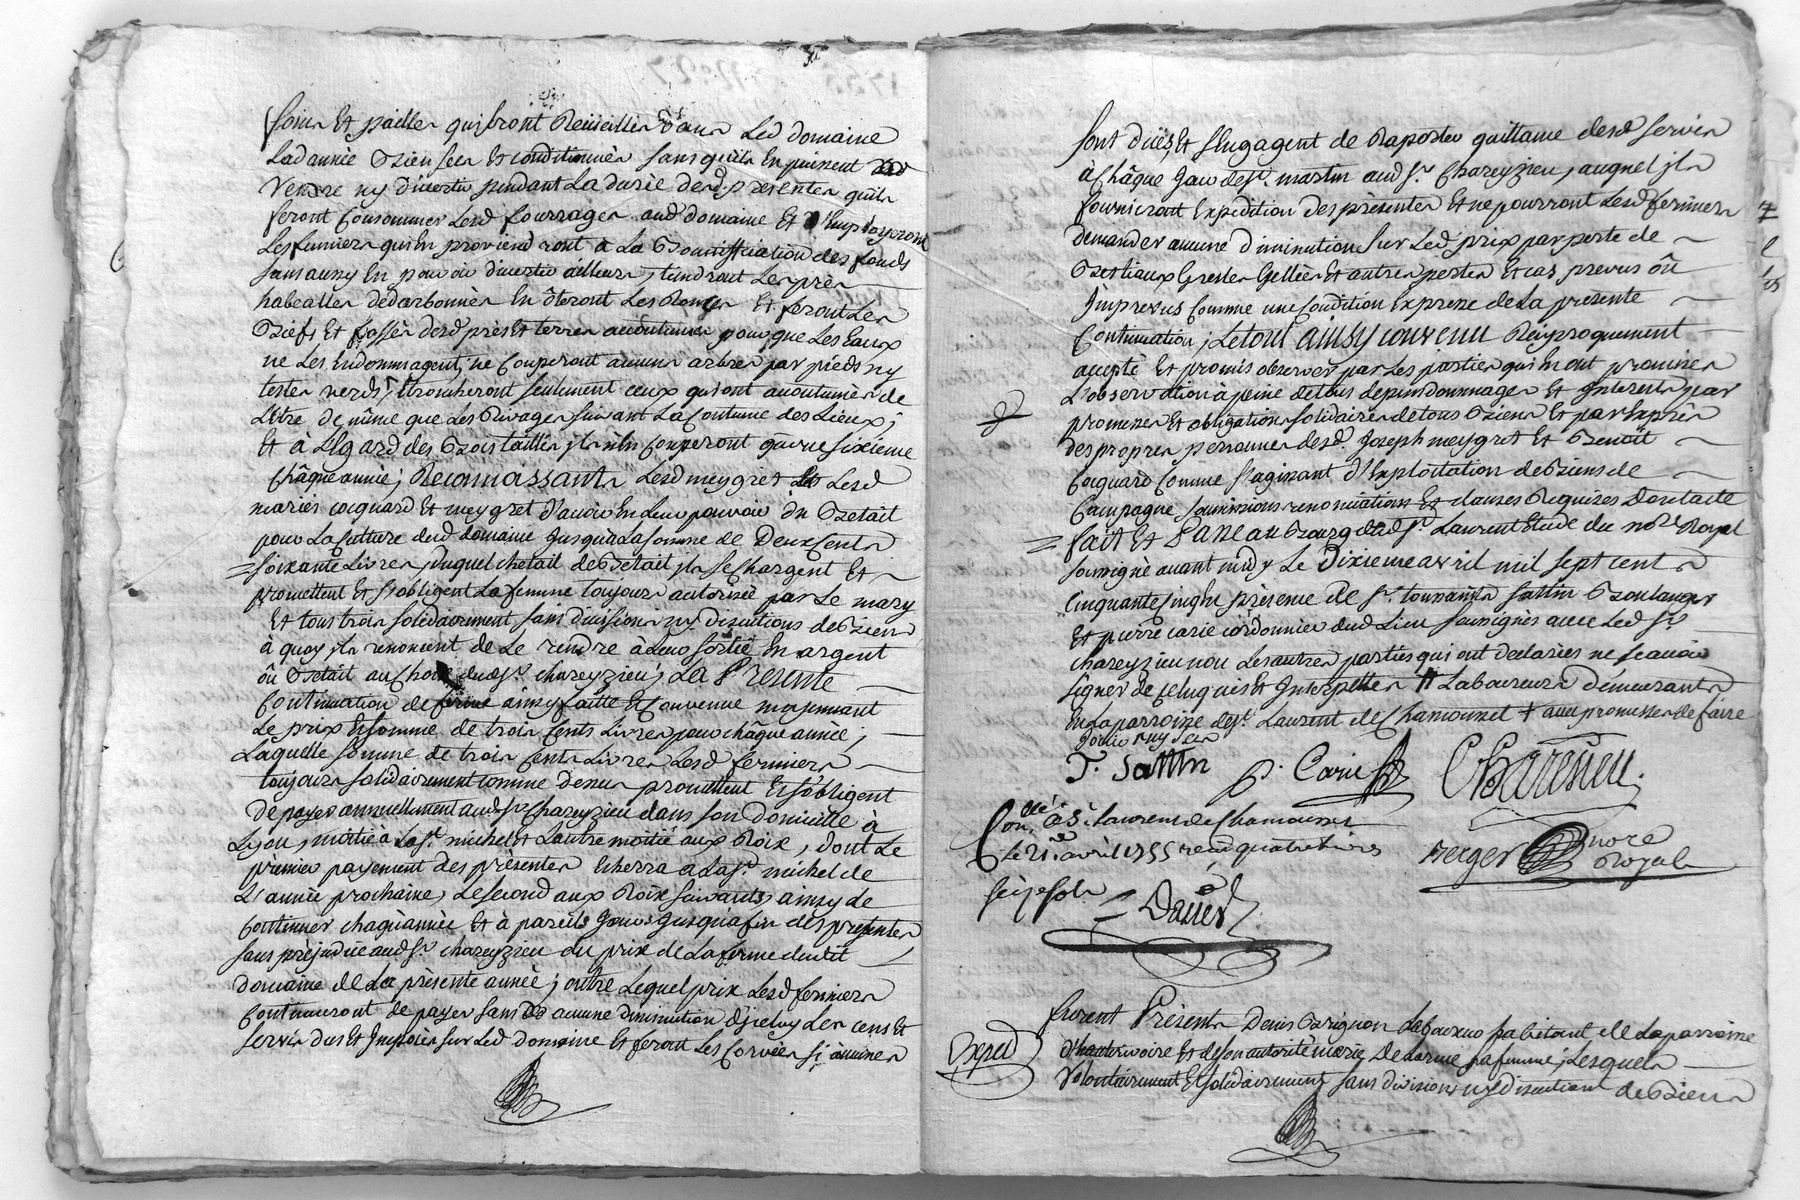 foins Et pailles qui seront Recüeillis dans Led domaine
Lad année Bien secs et conditionnés sans qu'ils En puissent
Vendre ny divertir pendant La durée desd. presentes qu'ils
feront Consommer Lesd fourrages aud domaine Et Employeront
Les fumiers qui En proviendront à La Bonniffication des fonds
sans aucuy En pouvoir divertir ailleurs, tiendront Les prés
En ôteront Les Ronces Et feront Les
Biefs Et fossés desd prés Et terres accoutumés pour que Les Eaux
ne Les Endommagent, ne Couperont aucuns arbres par pieds ny
testes verds, Ebrancheront seulement ceux qui ont accoutumés de
L'être de même que Les Rivages suivant La Coutume des Lieux;
Et à L'Egard des Bois taillis ils n'En Couperont qu'un sixieme
Châque année; Reconnoissants Lesd meygret Lesd
mariés cocquard Et meygret d'avoir En Leur pouvoir du Betail
pour La Culture dud domaine jusqu'à La somme de Deux Cents
soixante Livres, Duquel cheptail de Betail ils se Chargent Et
promettent Et s'obligent La femme toujours autorisée par Le mary
Et tous trois solidairement sans division ny discutions de Biens
à quoy ils renoncent de Le rendre à Leur sortie En argent
ôu Betail au Choix dudsr. chareyzieu; La Presente
Continuation de ferme ainsy faitte Et Convenue moyennant
Le prix Et somme de trois Cents Livres pour châque année,
Laquelle somme de trois Cents Livres Lesd fermiers
toujours solidairement comme Dessus promettent Et s'obligent
De payer annuellement audsr. Chareyzieu dans son domicille à
Lyon, moitié à La st. michel Et L'autre moitié aux Roix, dont Le
premier payement des presentes Echerra à La st. michel de
L'année prochaine, Le second aux Roix suivants, ainsy de
Continuer chaqu'année Et à pareils Jours jusqu'à fin des presentes
sans prejudice audsr. chareyzieu du prix de La ferme dudit
domaine de La présente année; outre Lequel prix Lesd fermiers
Continueront de payer sans aucune diminution d'jceluy Les cens Et
servis dus Et Imposés sur Led domaine Et feront Les Corvées si aucunes
sont duës, Et s'Engagent de Raporter quittance desd servis
à Châque Jour de st. martin aud sr. Chareyzieu, auquel ils
fourniront Expedition des presentes Et ne pourront Lesd fermiers
demander aucune diminution sur Led prix par perte de
Bestiaux Gresles Gellées Et autres pertes Et cas prevus ôu
Imprevus Comme une Condition Expresse de La presente
Continuation; Le tout ainsy convenu Reciproquement
accepté Et promis observer par Les parties qui En ont promises
L'observation à peine de tous depens dommages Et Interests par
promesses Et obligations solidaires de tous Biens Et par Exprès
des propres personnes desd. Joseph meygret Et Benoit
Cocquard Comme s'agissant d'Exploitation de Biens de
Campagne, soumissions renonciations Et clauses Requises Dont acte
fait Et Passé au Bourg dud st. Laurent Etude du nore. Royal
soussigné avant midy Le Dixieme avril mil sept cent
Cinquante Cinq En présence de sr. toussaints sattin Boulanger
Et pierre carie cordonnier dud Lieu soussignés avec Led sr.
chareyzieu non Les autres parties qui ont declarées ne sçavoir
signer de ce Enquis Et Interpellés # Laboureurs demeurants
En La parroisse de st. Laurent de Chamousset + avec promesses de faire
Jouir
T. Sattin P. Carie Chareisieu.
Conllé. à St. Laurens de Chamousset
le 21. avril 1755 recu quatre livres
seize sols Daver
Berger nore
Royal
Expéd
furent Presents Denis Brignon Laboureur habitant de La parroisse
d'hauterivoire Et de son autorité marie sa femme, Lesquels
Volontairement Et solidairement, sans division ny discutions de Biens